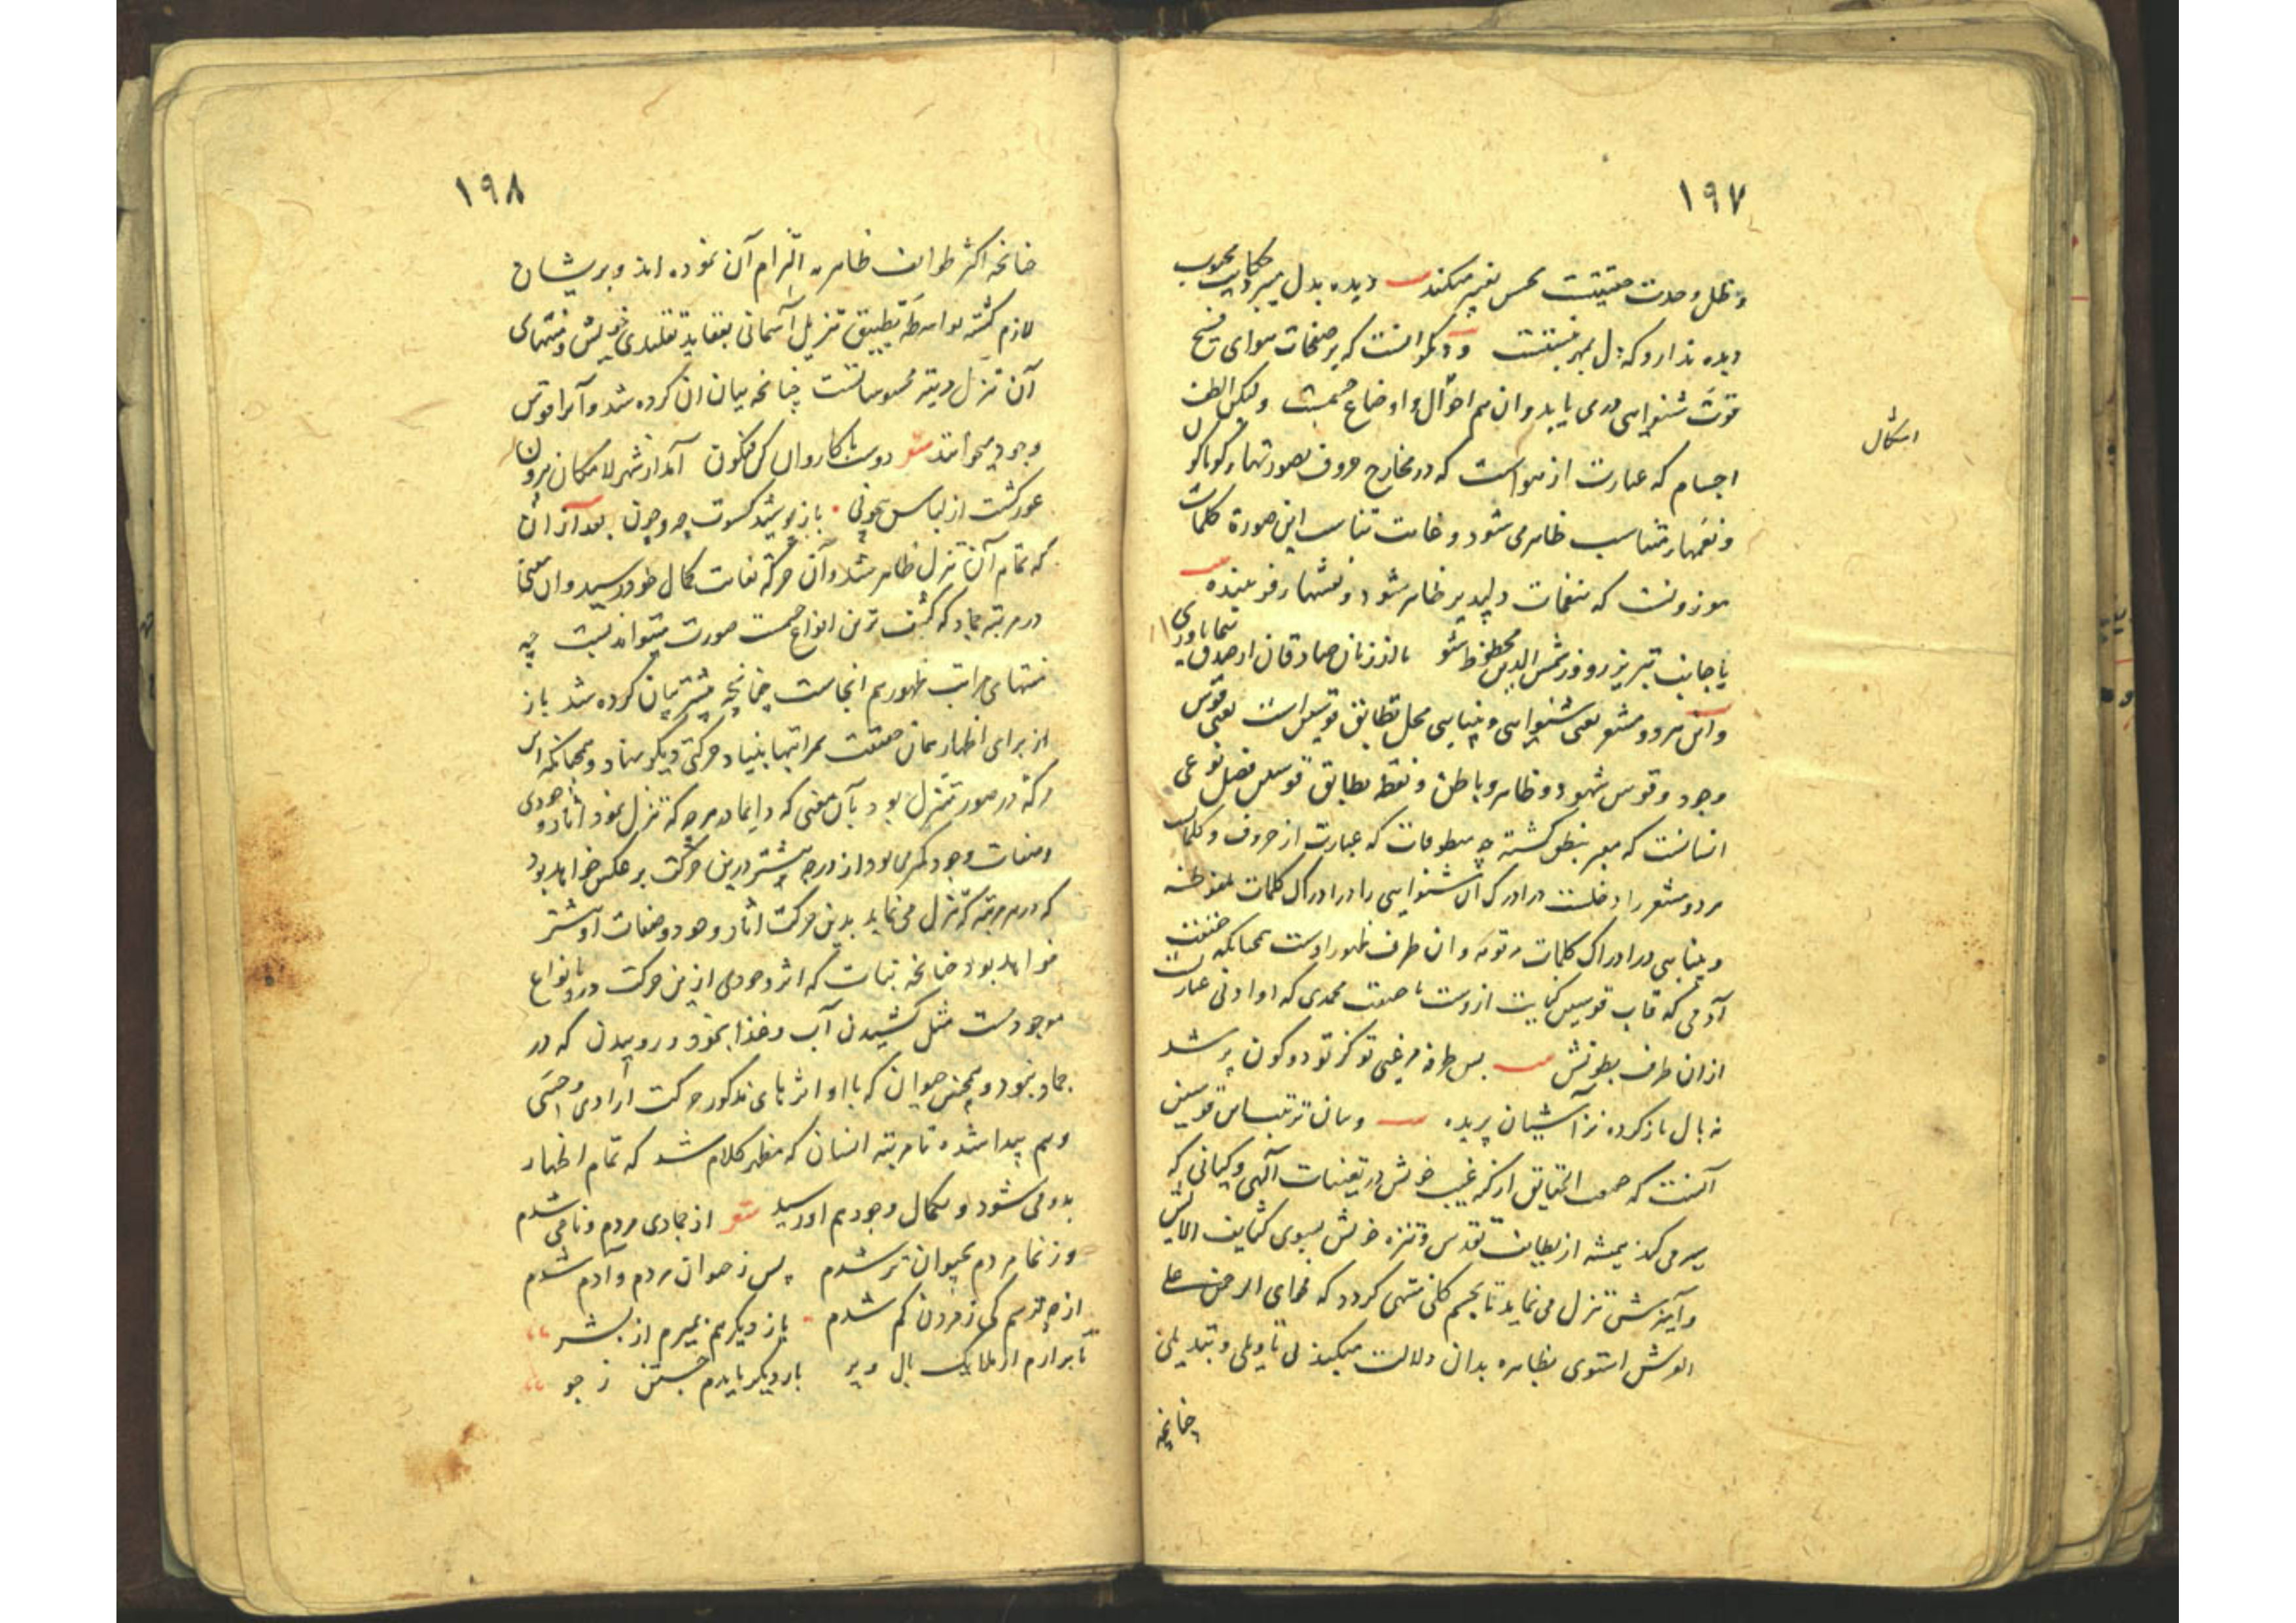 ۱۹۷
و ظل وحدت حقیقت بحس تعبیر میکند دیده بدل میبرد حکایت محبوب
دیده ندارد که دل بمهر نبستست و دیگر آنست که بر صفحات هوای فسیح
قوت شنوایی در می یابد و ان هم احوال و اوضاع جسمست و لیکن الطف
اشکال
اجسام که عبارت از هواست که در مخارج حروف بصورتهاء کوناکون
و نغمهاء متناسب ظاهر می شود و غایت تناسب این صورة کلمات
موزونست که بنغمات دلپذیر ظاهر شود و نقشهاء فریبنده
یا جانب تبریز رو و ز شمس الدین محظوظ شو یا از زبان صادقان از صدق بنما یاوری
و این هر دو مشعر یعنی شنوایی و بینایی محل تطابق قوسین است یعنی قوس
وجود و قوس شهود و ظاهر و باطن و نقطه تطابق قوسین فصل نوعی
انسانست که معبر بنطق کشته چه منطوقات که عبارت از حروف و کلماتست
هر دو مشعر را دخلست در ادراک ان شنوایی را در ادراک کلمات ملفوظه
و بینایی در ادراک کلمات مرقومه و ان طرف ظهور اوست همچنانکه حقیقت
آدمی که قاب قوسین کنایت ازوست با حقیقت محمدی که او ادنی عبارت
از ان طرف بطونش بس طرفه مرغی تو کز تو دو کون پر شد
نه بال باز کرده نز آشیان پریده و بیان ترتیب این قوسین
آنست که حقیقت الحقایق از کنه غیب خویش در تعینات آلهی و کیانی که
سیر می کند همیشه از لطایف تقدس و تنزه خویش بسوی کثایف الایش
و آمیزش تنزل می نماید تا بجسم کلی منتهی کردد که فحوای الرحمن علی
العرش استوی بظاهره بدان دلالت میکند بی تاویلی و تبدیلی
چنانچه
۱۹۸
چنانچه اکثر طوایف ظاهریه التزام آن نموده اند و بریشان
لازم کشته بواسطه تطبیق تنزیل آسمانی بعقاید تقلیدی خویش و منتهای
آن تنزل مرتبه محسوساتست چنانچه بیان ان کرده شد و آنرا قوس
وجود میخوانند شعر دوست با کاروان کن فیکون آمد از شهر لامکان بیرون
عور کشت از لباس بیچونی باز پوشید کسوت چه و چون بعد از ان
که تمام آن تنزل ظاهر شد و آن حرکة بغایت کمال خود رسید و ان معنی
در مرتبه جماد که کثیف ترین انواع جسمست صورت میتواند بست چه
منتهای مراتب ظهور هم انجاست چنانچه پیشتر بیان کرده شد باز
از برای اظهار همان حقیقت بمراتبها بنیاد حرکتی دیکر نهاد و همچنانکه ان
حرکة در صورت تنزل بود بآن معنی که دایما در هر چه که تنزل نمود آثار وجودی
و صفات وجود کمتر می بود از درجه پیشتر درین حرکت بر عکس خواهد بود
که در هر مرتبه که تنزل می نماید بدین حرکت اثار وجود و صفات او بیشتر
خواهد بود چنانچه نبات که اثر وجودی ازین حرکت درو بانواع
موجودست مثل کشیدن آب و غذا بخود و روییدن که در
جماد نبود و همچنین حیوان که با او اثرهای مذکور حرکت ارادی و حسی
و هم پیدا شده تا مرتبه انسان که مظهر کلام شد که تمام اظهار
بدو می شود و بکمال وجود هم او رسید شعر از جمادی مردم و نامی شدم
وز نما مردم بحیوان بر شدم پس ز حیوان مردم و آدم شدم
از چه ترسم کی ز مردن کم شدم باز دیکر هم بمیرم از بشر
تا برارم از ملایک بال و پر بار دیکر بایدم جستن ز جو